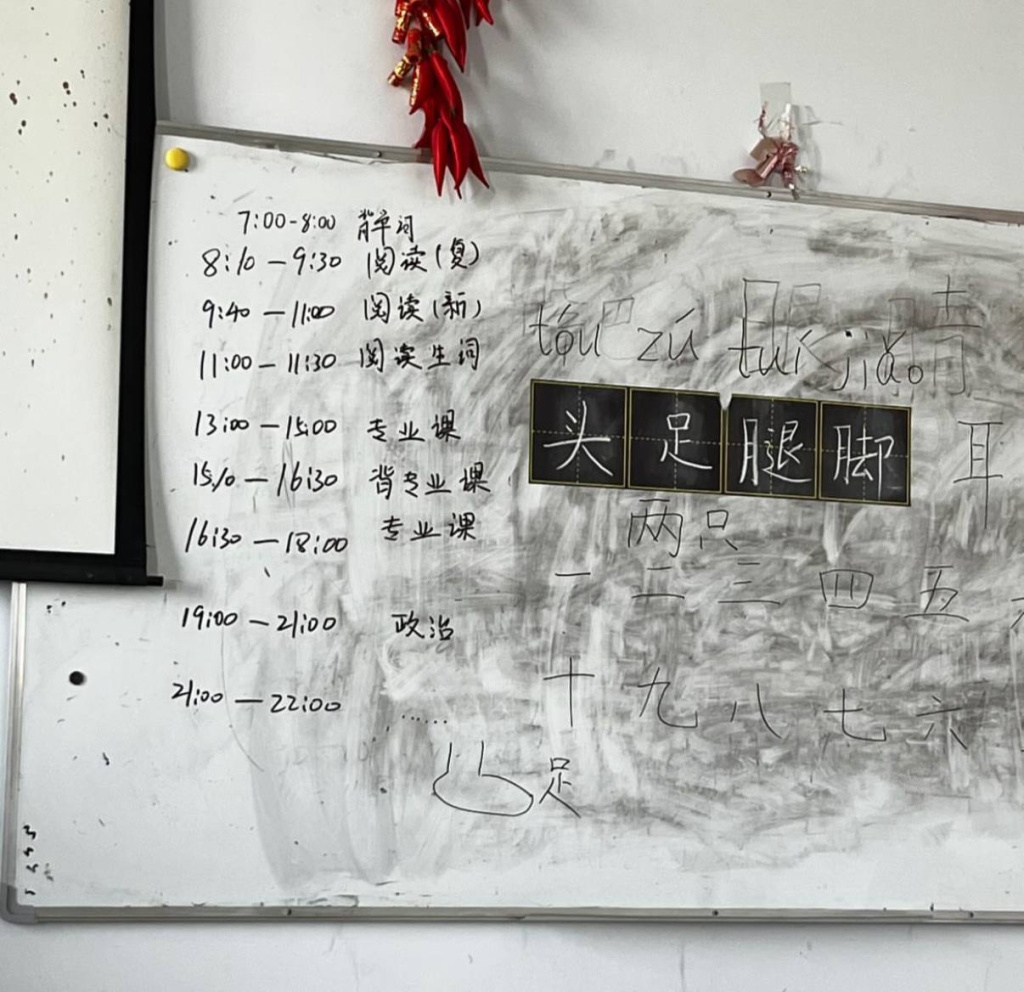 7:00-8:00 背单词
8:10-9:30 阅读(复)
9:40-11:00 阅读(新)
11:00-11:30 阅读生词
13:00-15:00 专业课
15:10-16:30 背专业课
16:30-18:00 专业课
19:00-21:00 政治
21:00-22:00 ……
tóu zú tuǐ jiǎo
头足腿脚 耳
两只
一 二 三 四 五
十 九 八 七 六
足